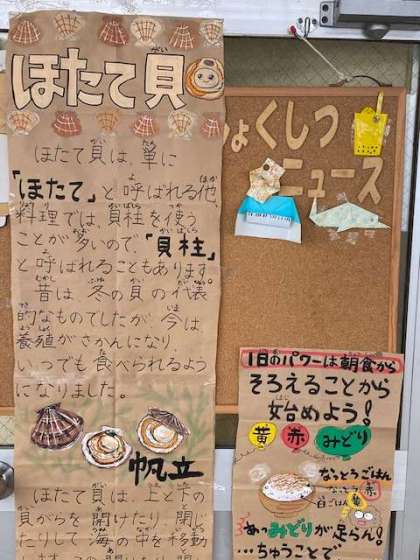 ほたて貝
ほたて貝は、単に
「ほたて」と呼ばれる他、
料理では、貝柱を使う
ことが多いので、「貝柱」
と呼ばれることもあります。
昔は、冬の貝の代表
的なものでしたが、今は、
養殖がさかんになり、
いつでも食べられるよう
になりました。
帆立
ほたて貝は、上と下の
貝がらを開けたり、閉じ
たりして海の中を移動
ょくしつ
ニュース
1日のパワーは朝食から
そろえることから
始めよう!
黄 赤 みどり
なっとうごはん
なっとう 赤
白ごはん 黄
あっみどりが足らん!
…ちゅうことで